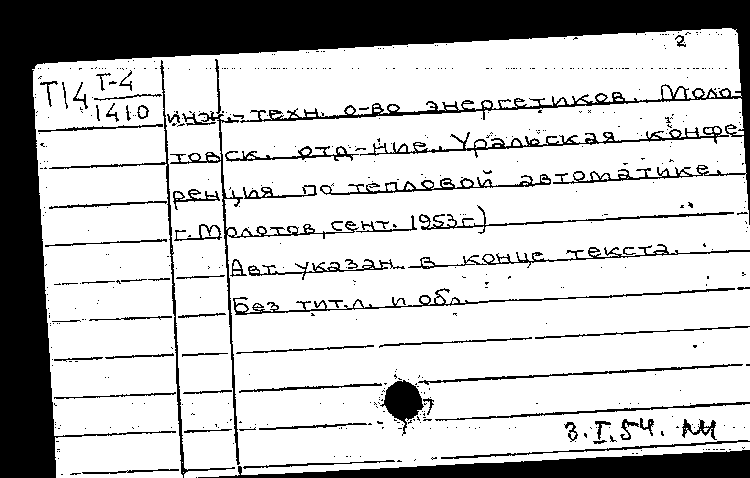 2
Т14 Т-4
1410
инж.-техн. о-во энергетиков. Моло-
товск. отд-ние. Уральская конфе-
ренция по тепловой автоматике.
г. Молотов, сент. 1953г.)
Авт. указан. в конце текста.
Без тит.л. и обл.
3.I.54.